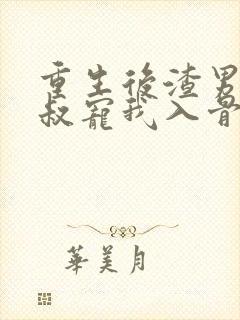 重生後渣男
叔寵我入骨
華美月